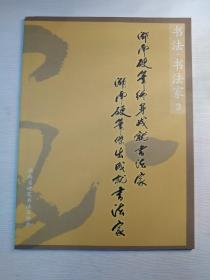 书法·书法家
湖南硬笔终身成就书法家
湖南硬笔杰出成就书法家